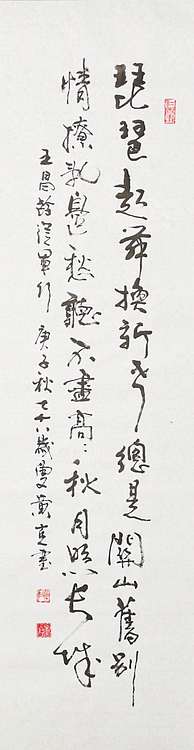 琵琶起舞換新聲總是關山舊別
情撩亂邊愁聽不盡高高秋月照長城
王昌齡從軍行 庚子秋七十八歲叟黃書